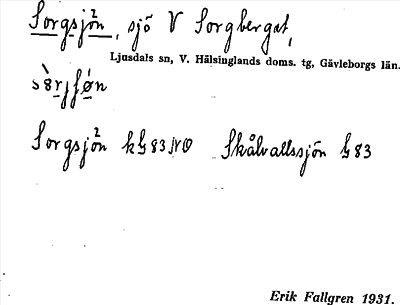 Sorgsjö²n, sjö V Sorgberget,
Ljusdals sn, V. Hälsinglands doms. tg, Gävleborgs län.
Sorgsjö²n kG83NO Skålvallssjön G83
Erik Fallgren 1931.